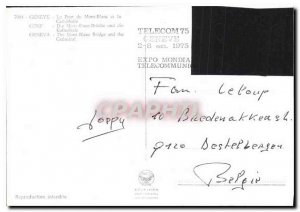 7001 - GENÈVE - Le Pont du Mont-Blanc et la
Cathédrale
GENF - Die Mont-Blanc-Brücke und die
Kathedrale
GENEVA - The Mont-Blanc Bridge and the
Cathedral
TELECOM 75
GENEVE
2-8 oct. 1975
EXPO MONDIA
TELECOMMUNI
Fam. Leloup
10 Bredenakkerdr.
9120 Destelbergen
België
Poppy
CPAPHIL
Reproduction interdite